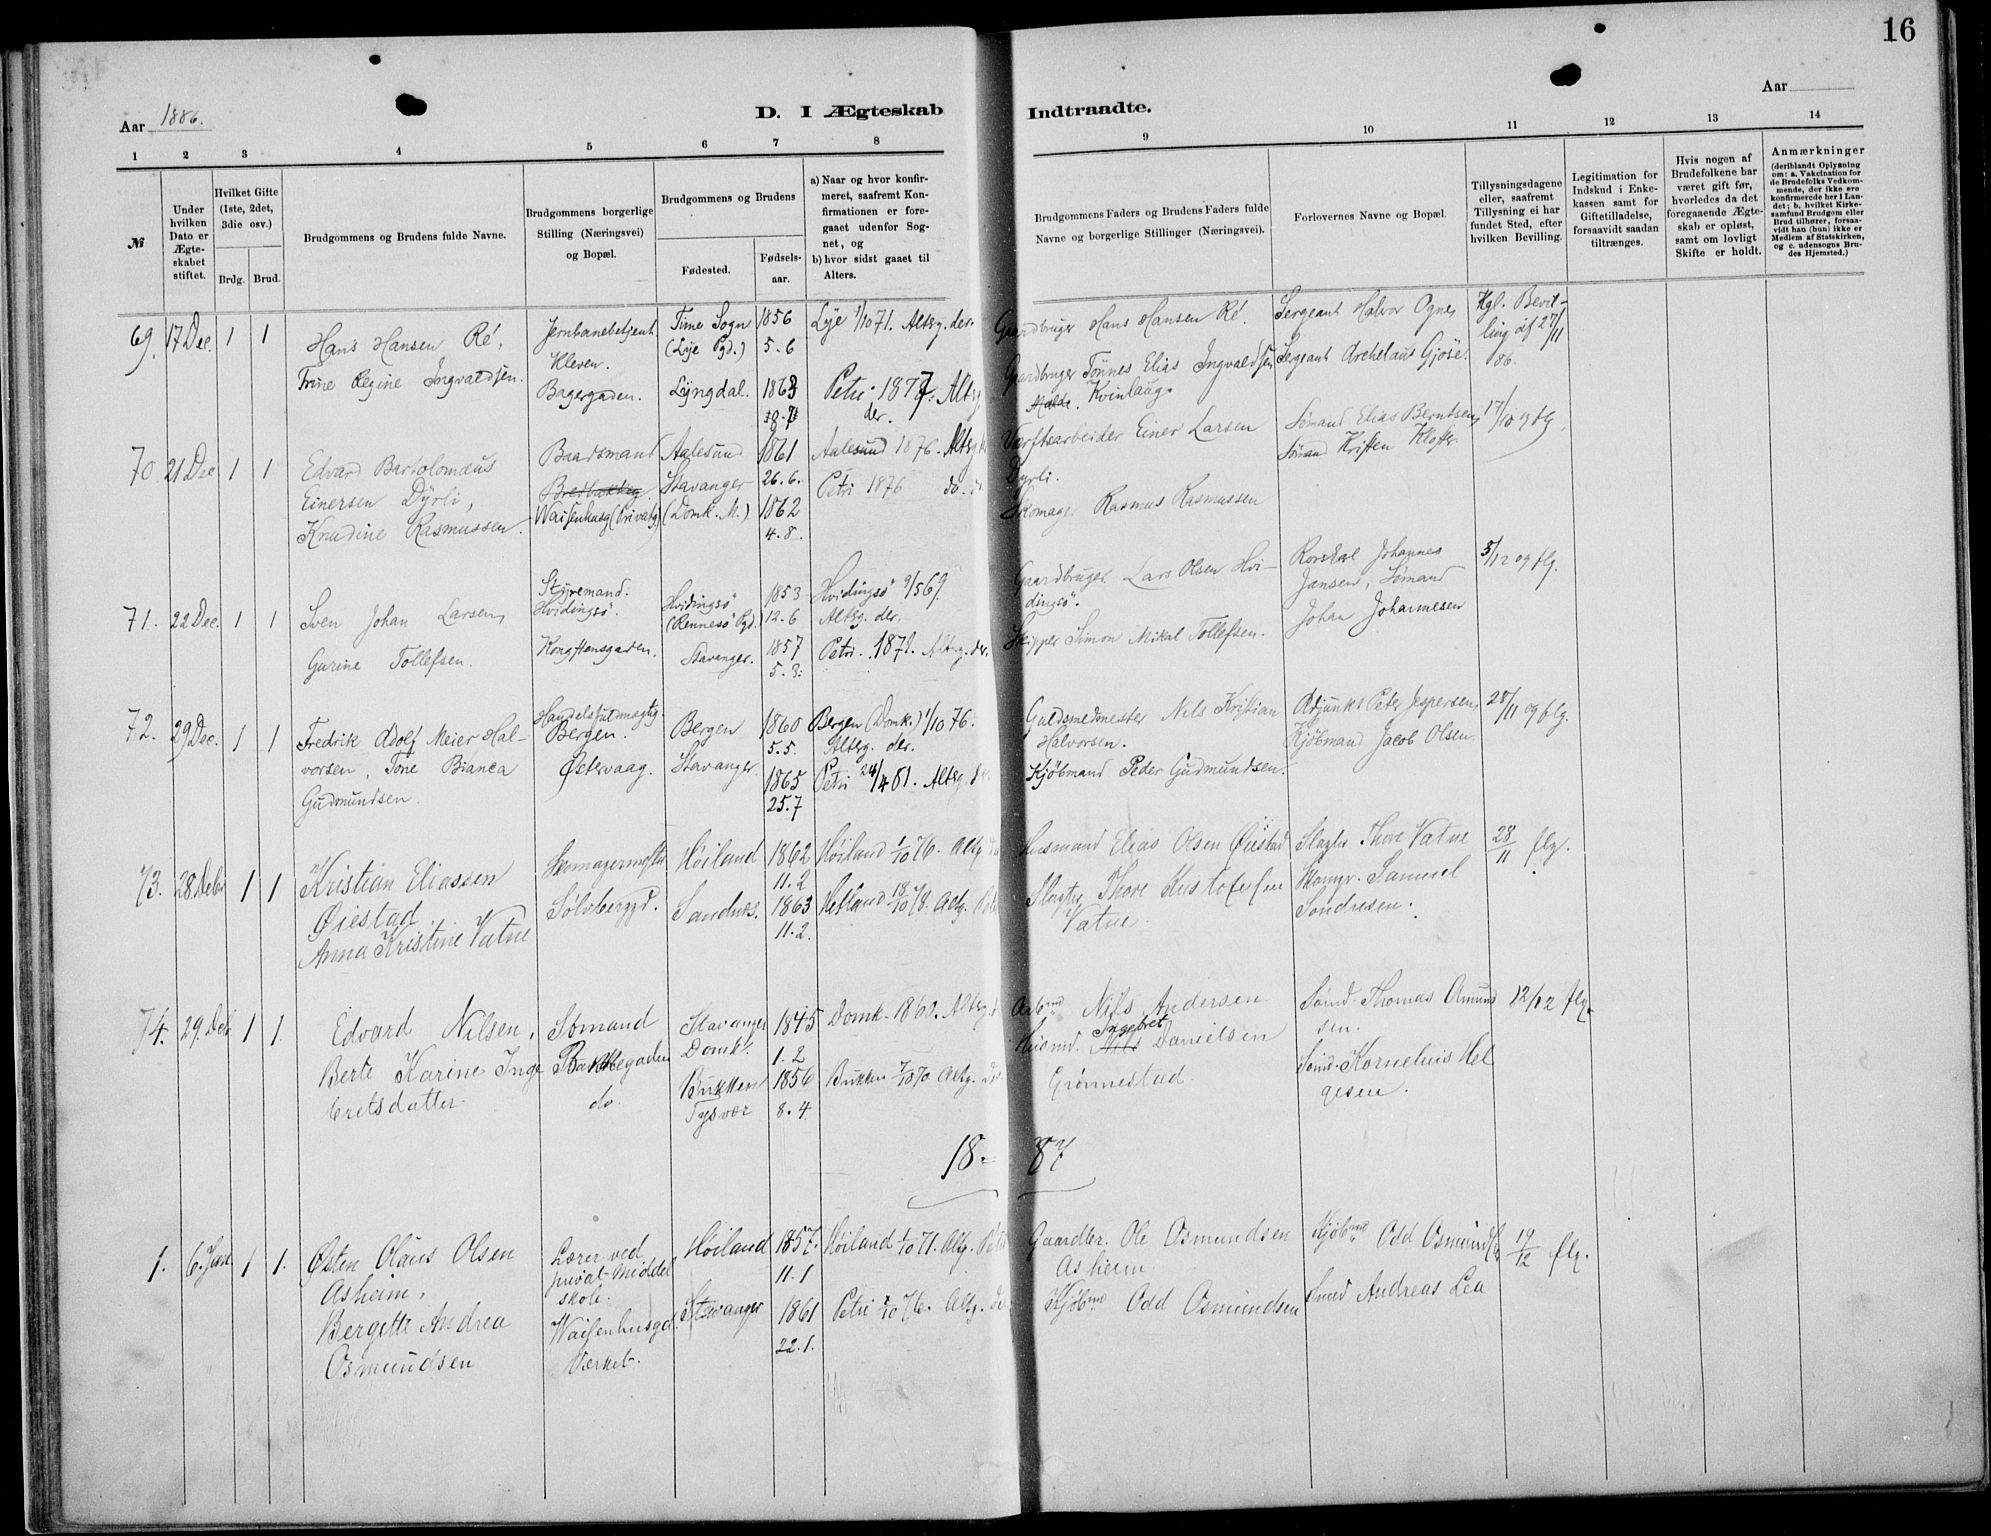 16
Aar 1886.
D. I Ægteskab Indtraadte.
Aar
1 2 3 4 5 6 7 8 9 10 11 12 13 14
№
Under hvilken Dato er Ægteskabet stiftet.
Hvilket Gifte (1ste, 2det, 3die osv.)
Brdg. Brud.
Brudgommens og Brudens fulde Navne.
Brudgommens borgerlige Stilling (Næringsvei) og Bopæl.
Brudgommens og Brudens
Fødested.
Fødsels-aar.
a) Naar og hvor konfir-
meret, saafremt Kon-
firmationen er fore-
gaaet udenfor Sog-
net, og
b) hvor sidst gaaet til
Alters.
Brudgommens Faders og Brudens Faders fulde
Navne og borgerlige Stillinger (Næringsvei).
Forlovernes Navne og Bopæl.
Tillysningsdagene
eller, saafremt
Tillysning ei har
fundet Sted, efter
hvilken Bevilling.
Legitimation for
Indskud i Enke-
kassen samt for
Giftetilladelse,
forsaavidt saadan
tiltrænges.
Hvis nogen af
Brudefolkene har
været gift før,
hvorledes da det
foregaaende Ægte-
skab er opløst,
samt om lovligt
Skifte er holdt.
Anmærkninger
(deriblandt Oplysning
om: a. Vakcination for
de Brudefolks Vedkom-
mende, der ikke ere
konfirmerede her i Lan-
det; b. hvilket Kirke-
samfund Brudgom eller
Brud tilhører, forsaa-
vidt han (hun) ikke er
Medlem af Statskirken,
og c. udensogns Bru-
des Hjemsted.)
69. 17 Dec. 1 1
Hans Hansen Ré,
Trine Regine Ingvaldsen.
Jernbanebetjent
Kleven.
Bagergaden.
Time Sogn
(Lye Pgd.)
Lyngdal.
1856
5-6
1863
Lye 1/10 71. Altrg. der.
Petri 1877. Altrg
der.
Gaardbruger Hans Hansen Ré.
Gaardbruger Tönnes Elias Ingvaldsen
Kvinlaug.
Sergeant Halvor Ognes
Sergeant Archelaus Gjøse.
Kgl. Bevil-
ling af 27/11
86.
70 21 Dec 1 1
Edvard Bartolomæus
Einersen Dÿrli,
Knudine Rasmussen.
Baadsmand
Waisenhusg (Privatg)
Aalesund
Stavanger
(Domk. M.)
1861
26.6.
1862
4.8.
Aalesund 1876. Altrg
Petri 1876 do.
Værftsarbeider Einer Larsen
Dyrli.
Skomager Rasmus Rasmussen
Sømand Elias Berntsen,
Sømand Kristen Kloster
17/10 og flg.
71. 22 Dec. 1 1
Sven Johan Larsen
Gurine Tollefsen.
Styremand.
Hvidingsö.
Kongstensgaden.
Hvidingsö
(Rennesö Pgd.
Stavanger.
1853
12.6
1857
5.3.
Hvidingsö 9/5 69.
Altrg. der.
Petri. 1871. Altrg. der.
Gaardbruger Lars Olsen Hvi-
dingsö.
Skipper Simon Mikal Tollefsen.
Rorskal Johannes
Jansen, Sømand
Johan Johannesen
5/12 og flg.
72. 29 Dec. 1 1
Fredrik Adolf Meier Hal-
vorsen, Tone Bianca
Gudmundsen.
Handelsfuldmægtig.
Bergen.
Østervaag.
Bergen
Stavanger
1860
5.5.
1865
25.7
Bergen (Domk.) 1/10 76.
Altrg. der.
Petri 24/4 81. Altrg. der
Guldsmedmester Nils Kristian
Halvorsen.
Kjøbmand Peder Gudmundsen.
Adjunkt Peter Jespersen,
Kjøbmand Jacob Olsen
28/11 og flg.
73. 28 Debr 1 1
Kristian Eliassen
Øiestad
Anna Kristine Vatne
Skomagermester
Sølvberggd.
Høiland
Sandnes.
1862
11.2
1863
11.2.
Høiland 1/10 76. Altg
Hetland 18/10 78. Altg. Petri
Husmand Elias Olsen Øiestad
Slagter Thore Kristofersen
Vatne
Slagter Thore Vatne
Skomgr. Samuel
Sondresen.
28/11 flg.
74. 29. Deb 1 1.
Edvard Nilsen,
Berte Karine Inge
bretsdatter.
Sømand
Bakkegaden
do.
Stavanger
Domk.
Bukken
Tysvær
1845
1.2
1856
8.4
Domk. 1861. Altrg.
Bukken 7/10 70. Altg. do.
Arbmd Nils Andersen
Husmd. Nils Ingebret Danielsen
Grønnestad.
Sømd. Thomas Amund
sen.
Sømd. Kornelius Hel
gesen.
12/12 flg.
18- 87
1. 6. Jan 1 1.
Østen Olaus Olsen
Asheim,
Bergitte Andrea
Osmundsen
Lærer ved
privat Middel
skole.
Waisenhusgd.
Verket.
Høiland
Stavanger
1857.
11.1
1861
22.1.
Høiland 1/10 71. Altg. Petri
Petri 1/10 76. Altg. do
Gaardbr. Ole Osmundsen
Asheim.
Kjøbmd Odd Osmundsen
Kjøbmd Odd Osmunds
Smed Andreas Lea
19/12 flg.